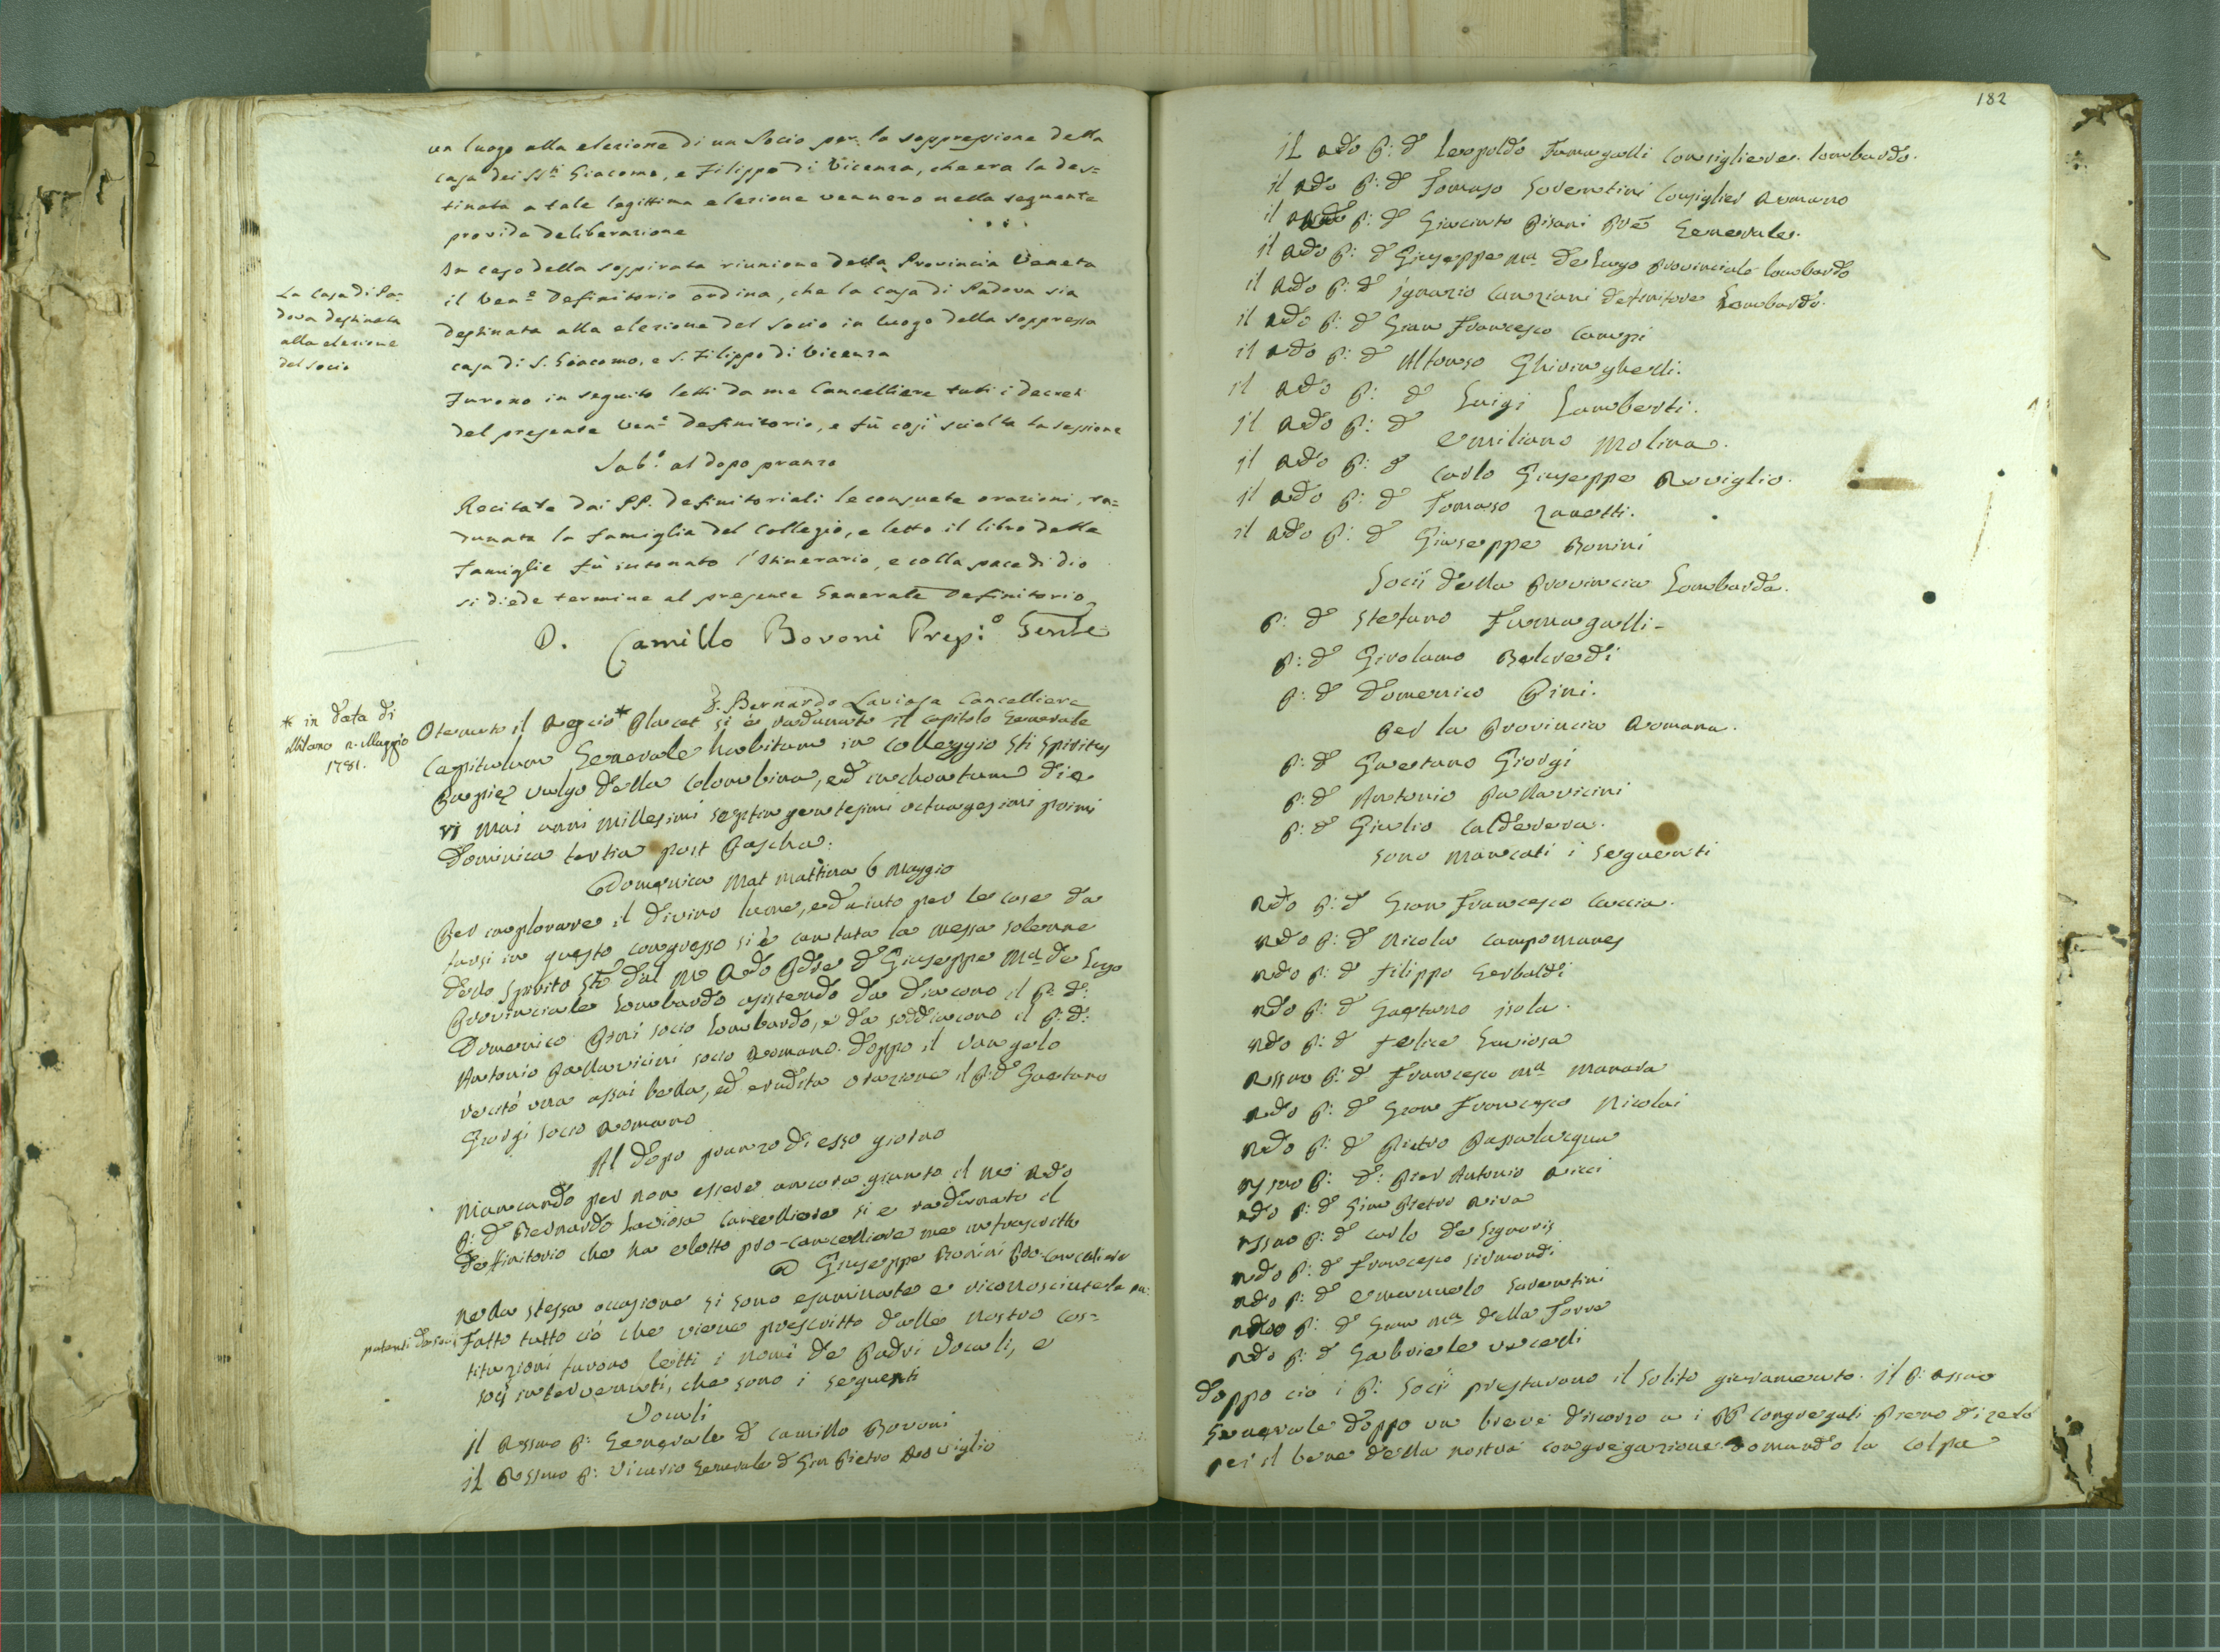 un luogo alla elezione di un Socio per la soppressione della
casa dei SS.ti Giacomo, e Filippo di Vicenza, che era la des=
tinata a tale legittima elezione vennero nella seguente
provida deliberazione
In caso della sospirata riunione della Provincia Veneta
il Ven.e Definitorio ordina, che la casa di Padova sia
destinata alla elezione del Socio in luogo della soppressa
casa di S. Giacomo, e S. Filippo di Vicenza
La Casa di Pa=
dova destinata
alla elezione
del socio
Furono in seguito letti da me Cancelliere tutti i decreti
del presente Ven.e Definitorio, e fù così sciolta la sessione
Sab.o al dopo pranzo
Recitate dai PP. Definitoriali le consuete orazioni, ra=
dunata la famiglia del Collegio, e letto il libro delle
Famiglie fù intonato l'Itinerario, e colla pace di dio
si diede termine al presente Generale Definitorio
D. Camillo Bovoni Prep:o Gen.le
D. Bernardo Laviosa Cancelliere
* in data di
Milano 2. Maggio
1781.
Otenuto il Regio* Placet si è radunato il Capitolo Generale
Capitulum Generale habitum in Colleggio Sti Spiritus
Papię vulgo della Colombina, ed inchoatum die
VI Mai anni millesimi septingentesimi octuagesimi primi
Dominica tertia post Pascha.
Domenica Mat mattina 6 Maggio
Per implorare il divino lume, ed aiuto per le cose da
farsi in questo congresso si è cantata la messa solenne
dello Spirito Sto dal Rdo Pdre D Giuseppe Ma de Lugo
Provinciale Lombardo assistendo da Diacono il P: D:
Domenico Pini socio Lombardo, e da soddiacono il P: D:
Antonio Pallavicini socio Romano. Doppo il Vangelo
recitò una assai bella, ed erudita orazione il P: D Gaetano
Giorgi socio Romano
Al dopo pranzo di esso giorno
Mancando per non essere ancora giunto il Rdo
P: D Bernardo Laviosa Cancelliere si è radunato il
Deffinitorio che ha eletto pro-cancelliere me infrascritto
D Giuseppe Bonini Pro-Cancelliere
Nella stessa occasione si sono esaminate e riconosciute le pa:
patenti de soci Fatto tutto ciò che viene prescritto dalle nostre cos=
tituzioni furono letti i nomi de Padri Vocali, e
socj intervenuti, che sono i seguenti
Vocali
Il Rssmo P: Generale D Camillo Bovoni
il Rssmo P: Vicario Generale D Gan Pietro Roviglio
182
Il Rdo P: D Leopoldo Fumagalli Consigliere Lombardo.
il Rdo P: D Tomaso Soventini Consiglier Romano
il Rdo P: D Giacinto Pisani Generale.
il Rdo P: D Giuseppe Ma de Lugo Provinciale Lombardo
il Rdo P: D Ignazio Canziani definitore Lombardo.
il Rdo P: D Gian Francesco Campi
il Rdo P: D Alfonso Ghiringhelli.
il Rdo P: D Luigi Lamberti.
il Rdo P: D Emiliano Molina.
il Rdo P: D Carlo Giuseppe Roviglio.
il Rdo P: D Tomaso Zanetti.
il Rdo P: D Giuseppe Bonini
Socii della Provincia Lombarda.
P: D Stefano Fumagalli-
P: D Girolamo Balverdi
P: D Domenico Pini.
Per la Provincia Romana.
P: D Gaetano Giorgi
P: D Antonio Pallavicini
P: D Giulio Calderera.
sono mancati i seguenti
Rdo P: D Gian Francesco Caccia.
Rdo P: D Nicola Campomanes
Rdo P: D Filippo Gerbaldi
Rdo P: D Gaetano Isola.
Rdo P: D Felice Laviosa
Rssmo P: D Francesco Ma Manara
Rdo P: D Gian Francesco Nicolai
Rdo P: D Pietro Passalacqua
Rssmo P: D: Pier Antonio Ricci
Rdo P: D Gian Pietro Riva
Rssmo P: D Carlo de Signoris
Rdo P: D Francesco Sirmondi
Rdo P: D Emanuelo Soventini
Rdo P: D Gian Ma della Torre
Rdo P: D Gabriele Vecelli
Doppo ciò i P: Socii prestarono il solito giuramento. Il P: Rssmo
Generale doppo un breve discorso a i PP congregati pieno di zelo
per il bene della nostra congregazione domandò la colpa